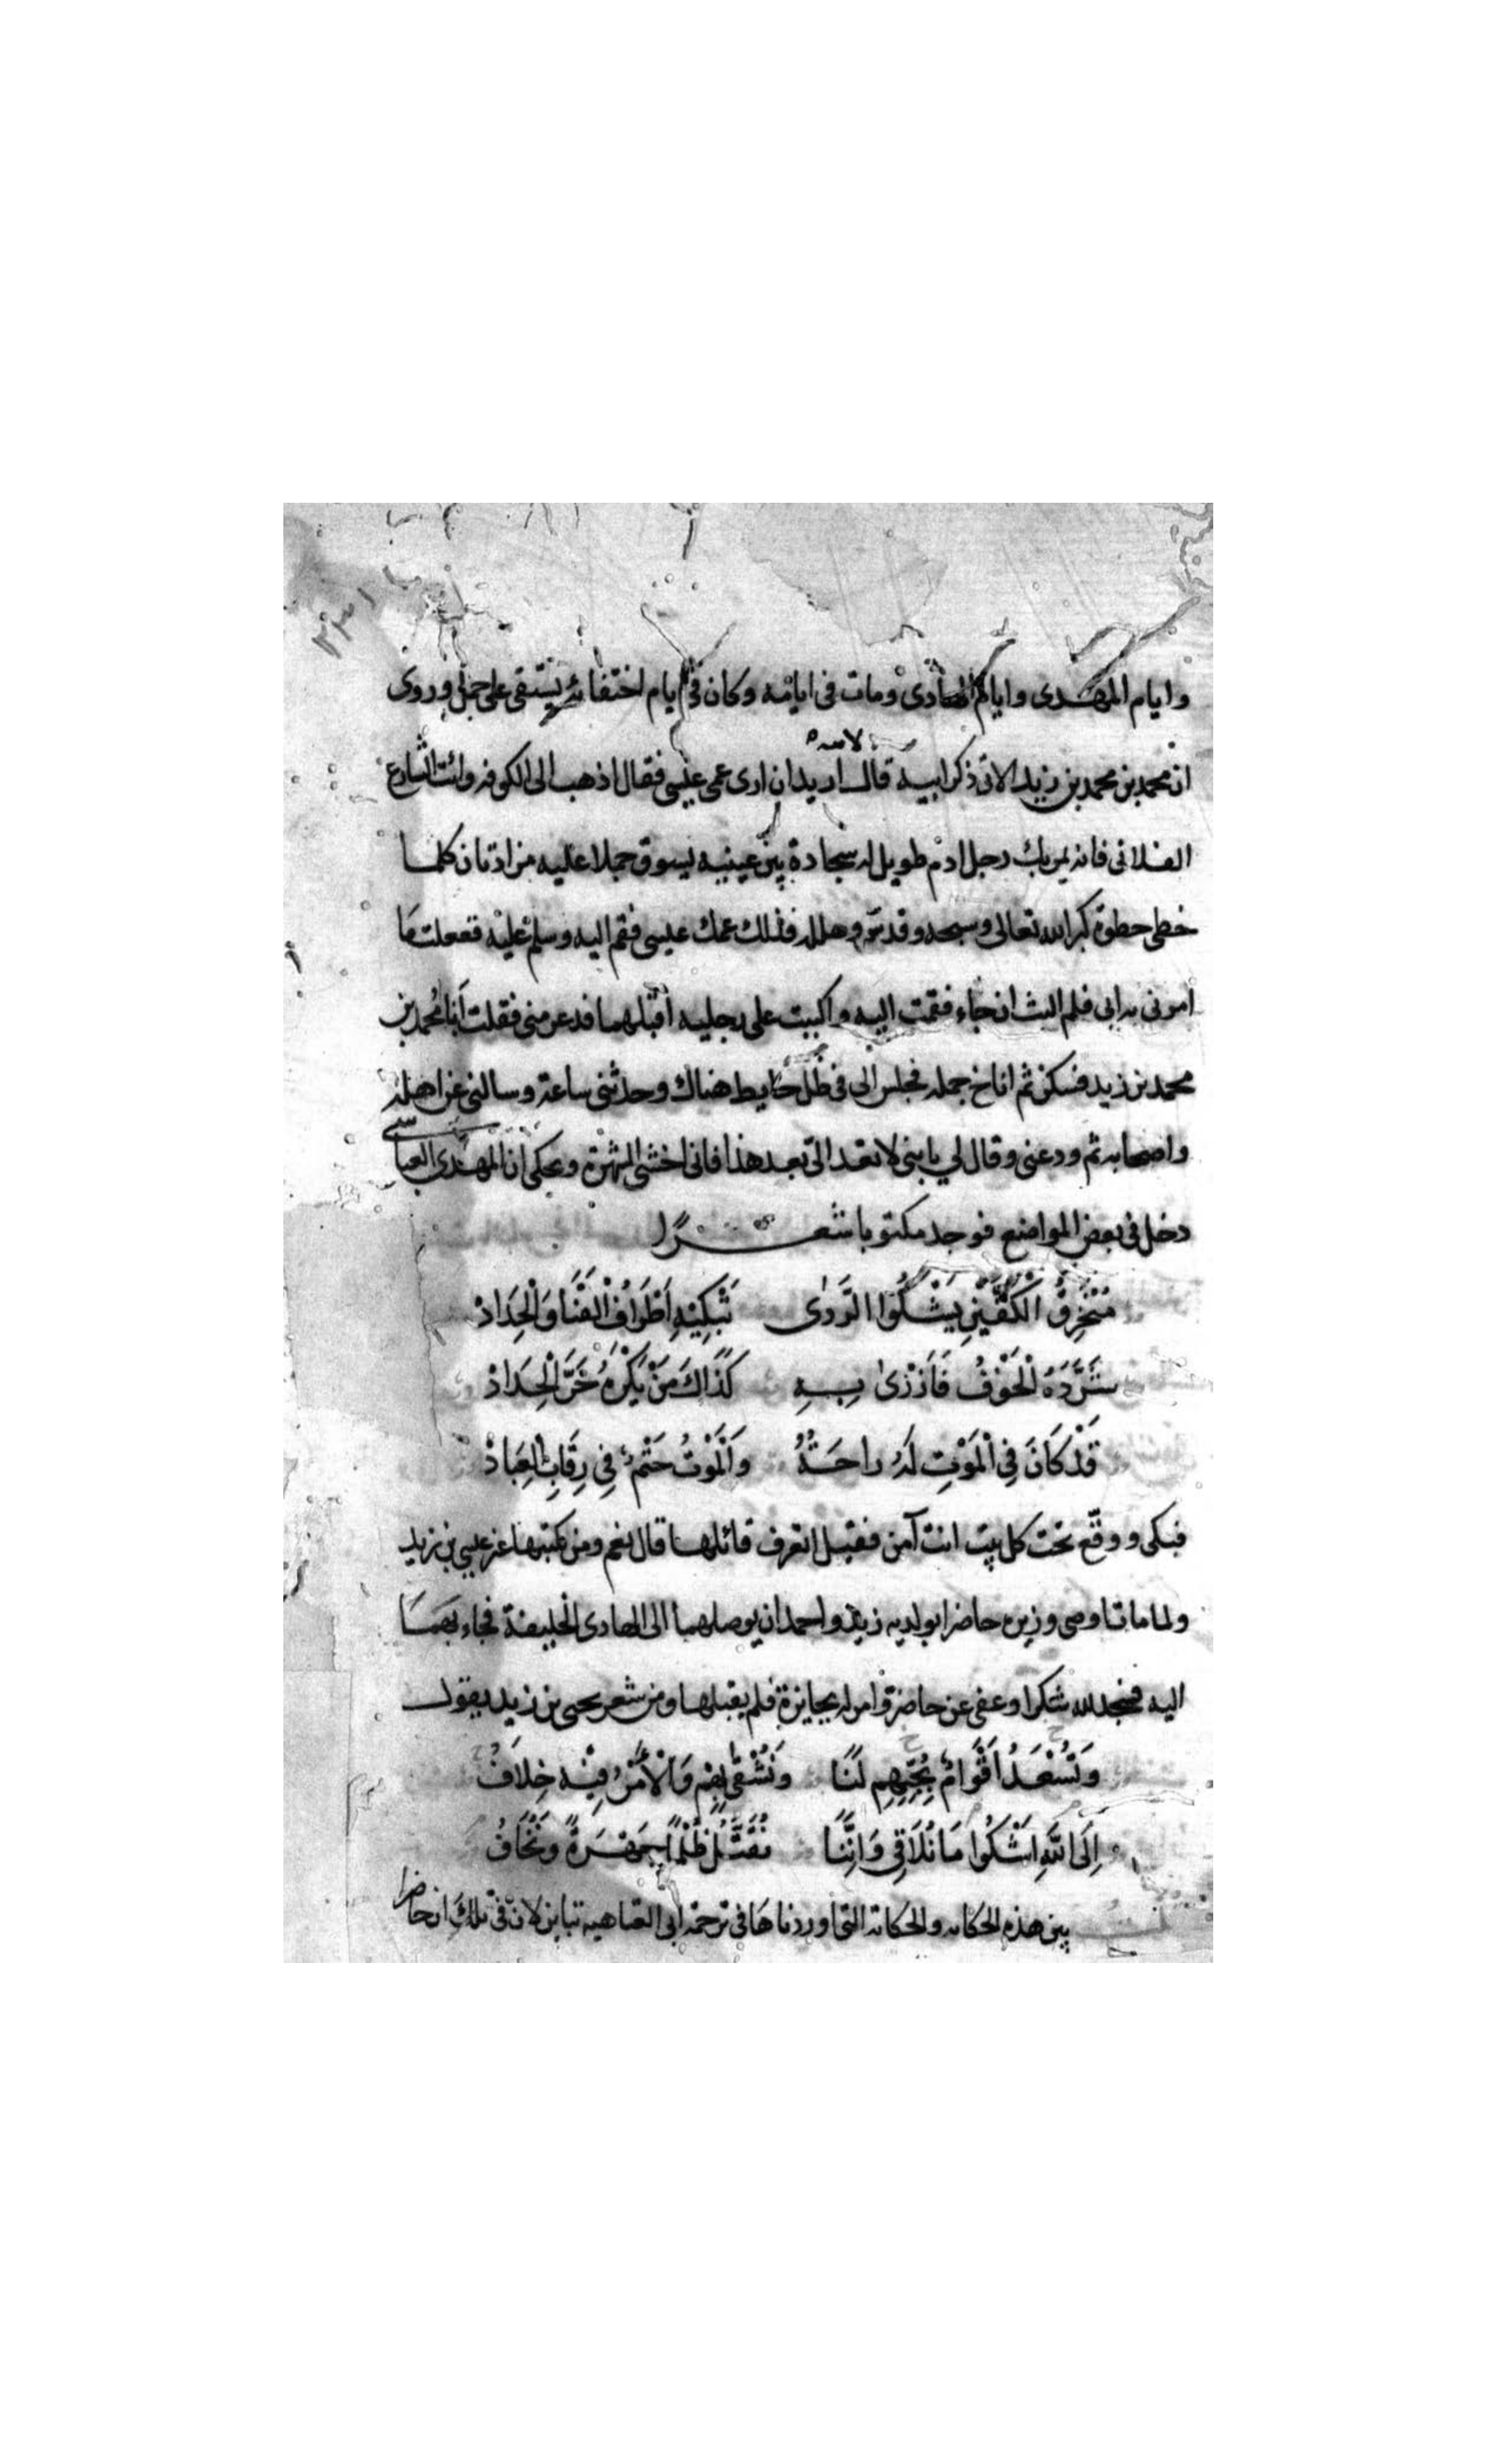 ٢٣١
وايام المهدى وايام الهادى ومات فى ايامه وكان فى ايام اختفائه يستقى على جمل وروى
لابيه
ان محمد بن محمد بن زيد الاتى ذكر ابيه قال اريد ان ارى عمى عيسى فقال اذهب الى الكوفه وائت الشارع
الفلانى فانه يمر بك رجل ادم طويل له سجادة بين عينيه يسوق جملا عليه مزادتان كلما
خطى خطوة كبر الله تعالى وسبحه وقدسه وهلله فذلك عمك عيسى فقم اليه وسلم عليه ففعلت ما
امرنى به ابى فلم البث ان جاء فقمت اليه واكبيت على رجليه اقبلهما فذعر منى فقلت انا محمد بن
محمد بن زيد فسكن ثم اناخ جمله فجلس الى فى ظل حايط هناك وحدثنى ساعة وسالنى عن اهله
واصحابه ثم ودعنى وقال لي يا بنى لا تعد الىّ بعد هذا فانى اخشى الشهرة وحكى ان المهدى العباسي
دخل فى بعض المواضع فوجد مكتوبا شعرًا
مُنْخَرِقُ الْكَفَّيْنِ يَشْكُوا الرَّدٰى تَبْكِيْهِ اَطْرَافُ الْقَنَا وَالْحِدَادْ
شَرَّدَهُ الْخَوْفُ فَاَزْرٰى بِهِ كَذَاكَ مَنْ يَكْرَهُ حَرَّ الْجِلَادْ
قَدْ كَانَ فِي الْمَوْتِ لَهُ رَاحَةٌ وَالْمَوْتُ حَتْمٌ فِي رِقَابِ الْعِبَادْ
فبكى ووقّع تحت كل بيت انت آمن فقيل اتعرف قائلها قال نعم ومن كتبها غير عيسى بن زيد
ولما مات اوصى وزيره حاضرا بولديه زيد واحمد ان يوصلهما الى الهادى الخليفة فجاء بهما
اليه فسجد لله شكرا وعفى عن حاضر وامر له بجايزة فلم يقبلها ومن شعر يحيى بن زيد يقول
وَتَسْعَدُ اَقْوَامٌ بِحُبِّهِمِ لَنَا وَنَشْقٰى بِهِمْ وَالْاَمْرُ فِيْهِ خِلَافُ
اِلَى اللّٰهِ اَشْكُوا مَا نُلَاقِى وَاِنَّنَا نُقَتَّلُ ظُلْمًا جَهْرَةً وَنُخَافُ
بين هذه الحكايه والحكاية التى اوردناها فى ترجمة ابى العتاهيه تباين لان فى تلك ان حاضرا